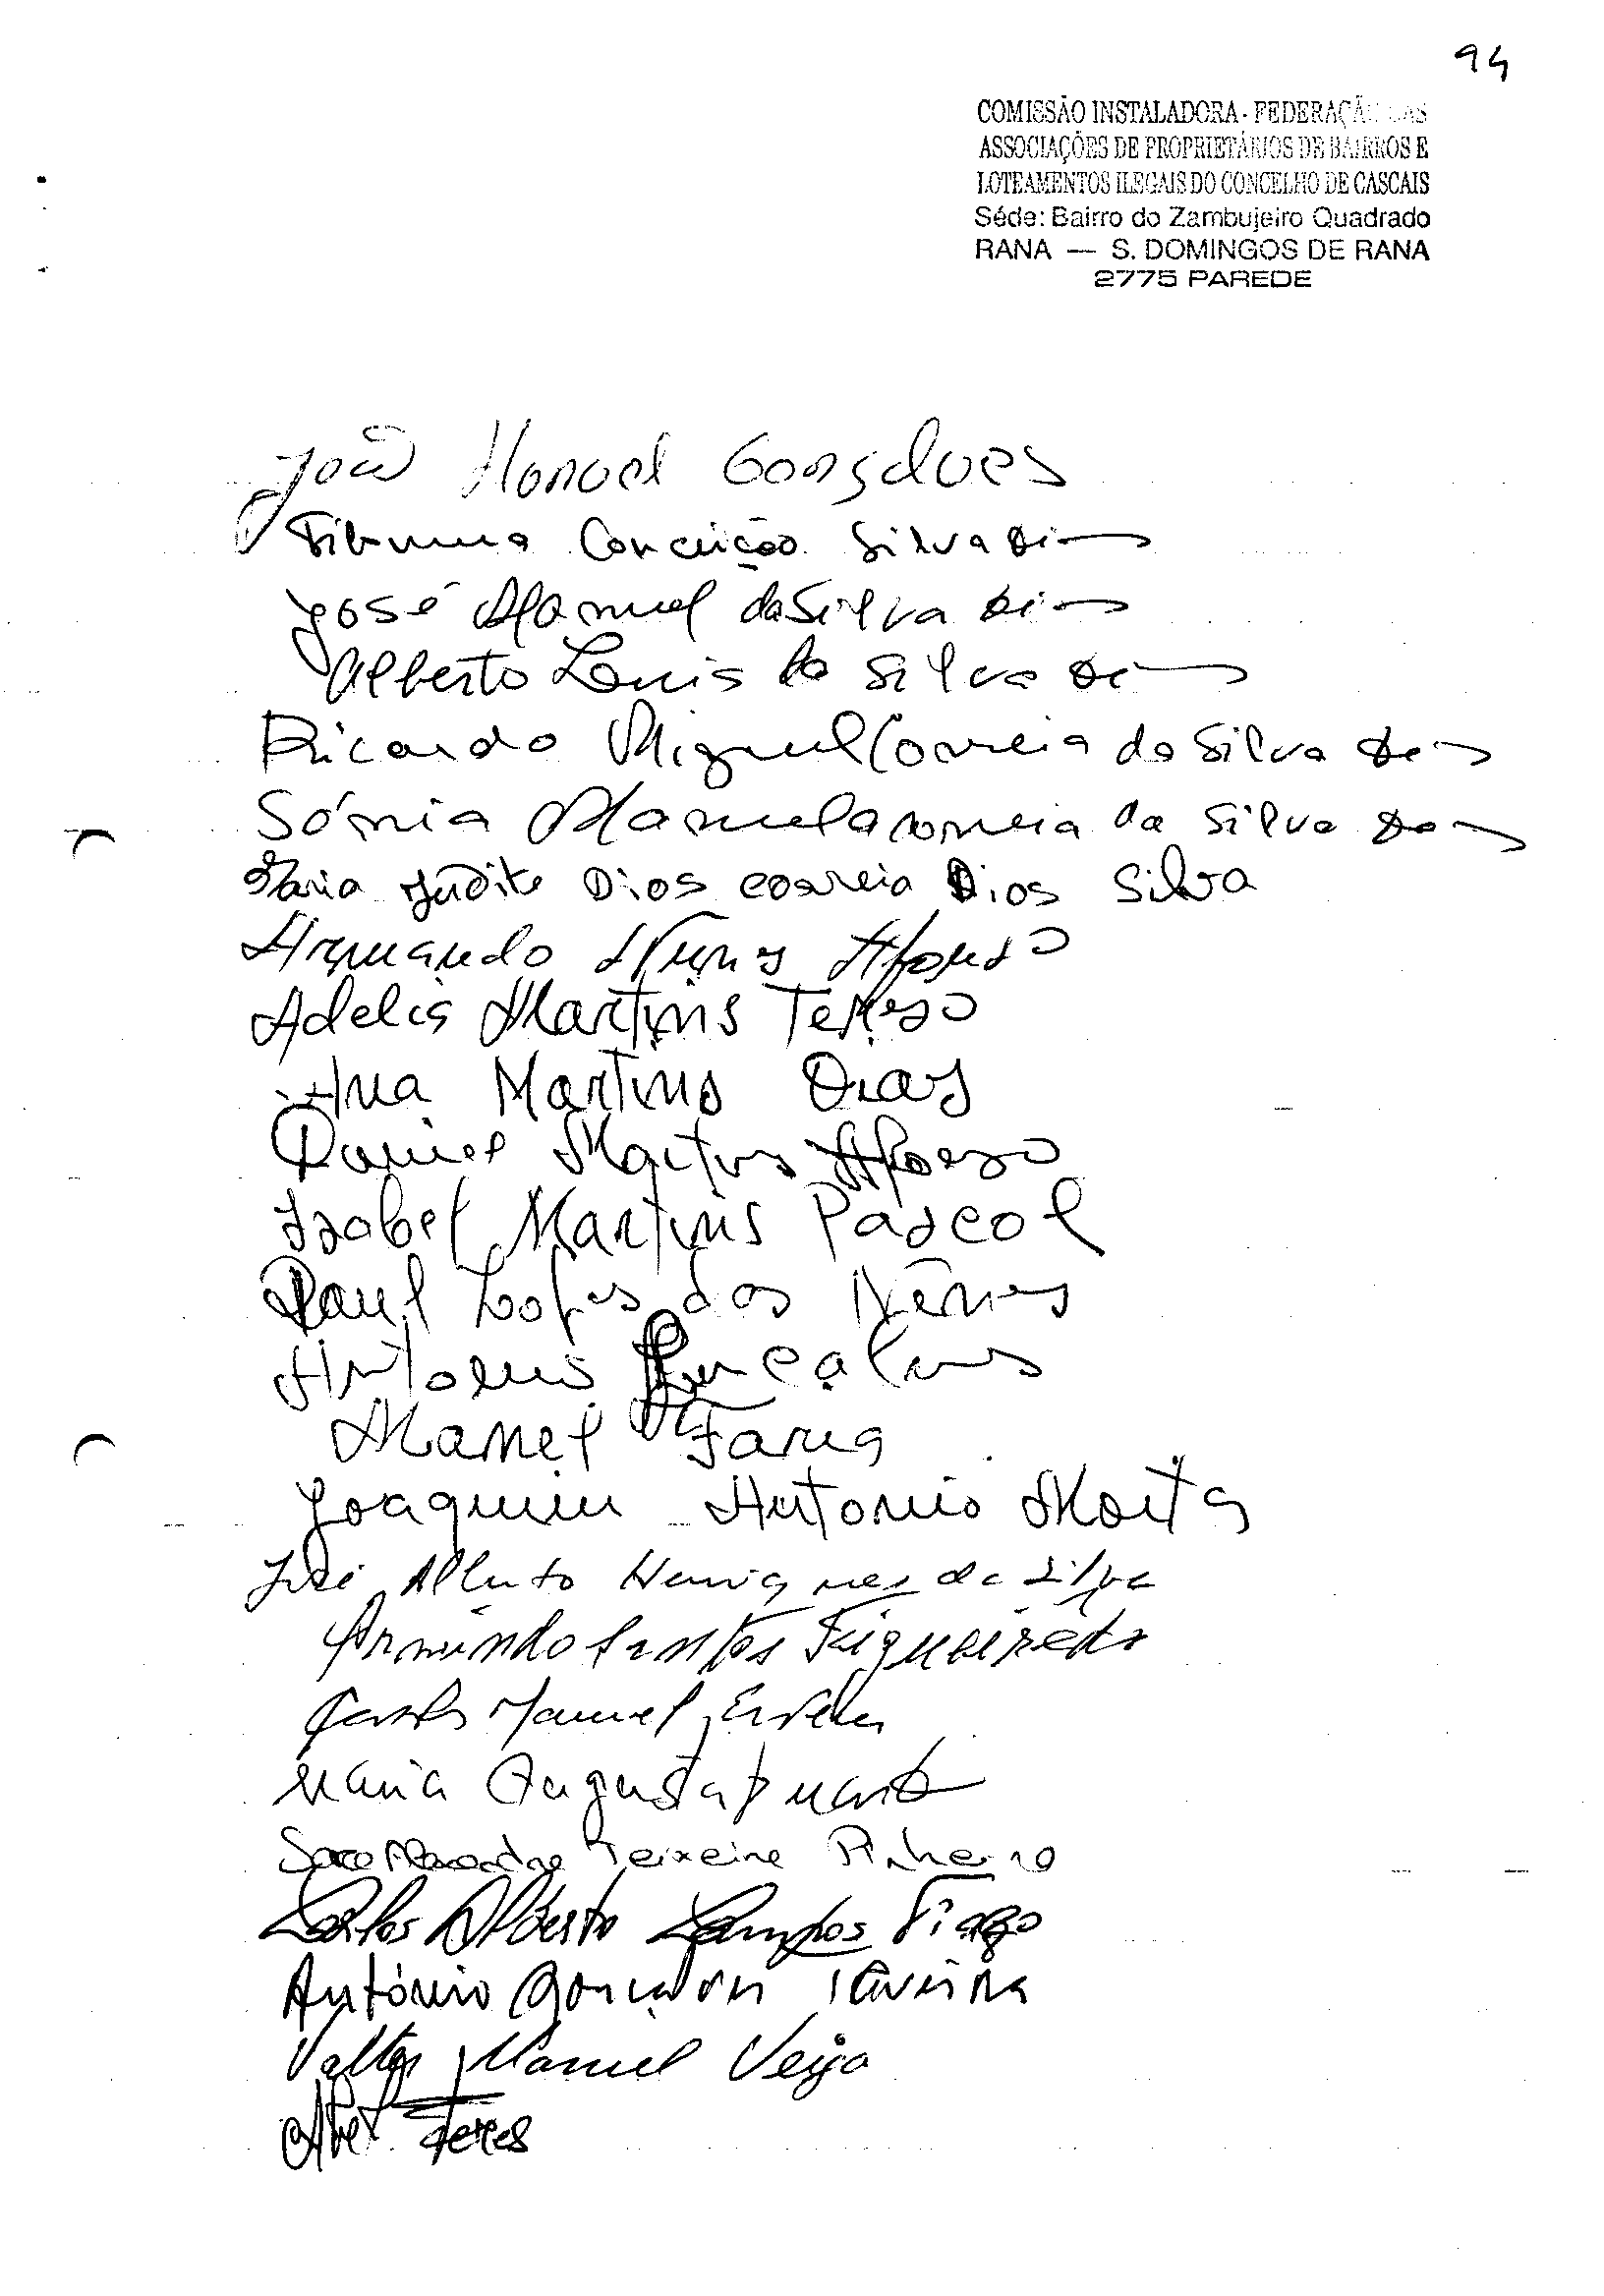 94
COMISSÃO INSTALADORA - FEDERAÇÃO DAS
ASSOCIAÇÕES DE PROPRIETÁRIOS DE BAIRROS E
LOTEAMENTOS ILEGAIS DO CONCELHO DE CASCAIS
Séde: Bairro do Zambujeiro Quadrado
RANA — S. DOMINGOS DE RANA
2775 PAREDE
João Manoel Gonçalves
Conceição Silva Dias
José Manuel da Silva Dias
Alberto Luis da Silva Dias
Ricardo Miguel Correia da Silva Dias
Sónia Manuela Correia da Silva Dias
Maria Judite Dios Correia Dios Silva
Armando Nunes Afonso
Adelia Martins
Ana Martins Dias
Daniel Martins Afonso
Izabel Martins Pascol
Raul Lopes dos
Antonio Gonçalves
Manel Faria
Joaquim Antonio Moita
José Alberto Henriques da Silva
Armindo Santos Figueiredo
Carlos Manuel
Maria Augusta Duarte
Teixeira Pinheiro
Carlos Alberto Campos Tiago
António Gonçalves
Valter Manuel Veiga
Abel